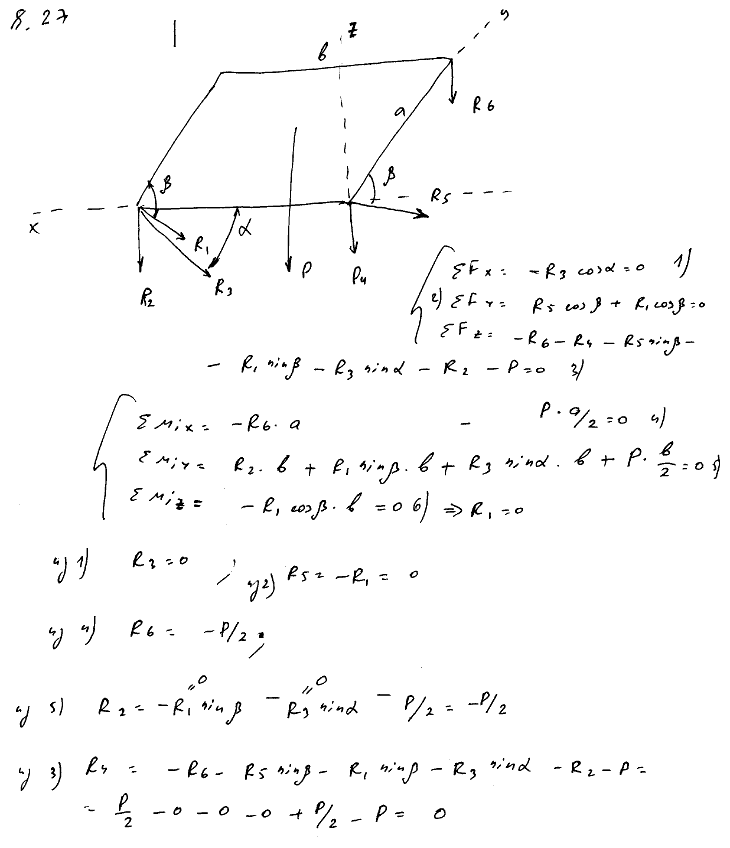 8.27
z
y
в
a
R6
β
β
R5
x
α
R1
R3
P
R2
P4
ΣFx = -R3 cosα = 0 1)
2) ΣFy = R5 cosβ + R1 cosβ = 0
ΣFz = -R6 - R4 - R5 sinβ -
- R1 sinβ - R3 sinα - R2 - P = 0 3)
ΣMix = -R6 · a - P · a/2 = 0 4)
ΣMiy = R2 · в + R1 sinβ · в + R3 sinα · в + P · в/2 = 0 5)
ΣMiz = -R1 cosβ · в = 0 6) ⇒ R1 = 0
из 1) R3 = 0 ; из 2) R5 = -R1 = 0
из 4) R6 = -P/2 ;
из 5) R2 = -R1 sinβ - R3 sinα - P/2 = -P/2
из 3) R4 = -R6 - R5 sinβ - R1 sinβ - R3 sinα - R2 - P =
= P/2 - 0 - 0 - 0 + P/2 - P = 0